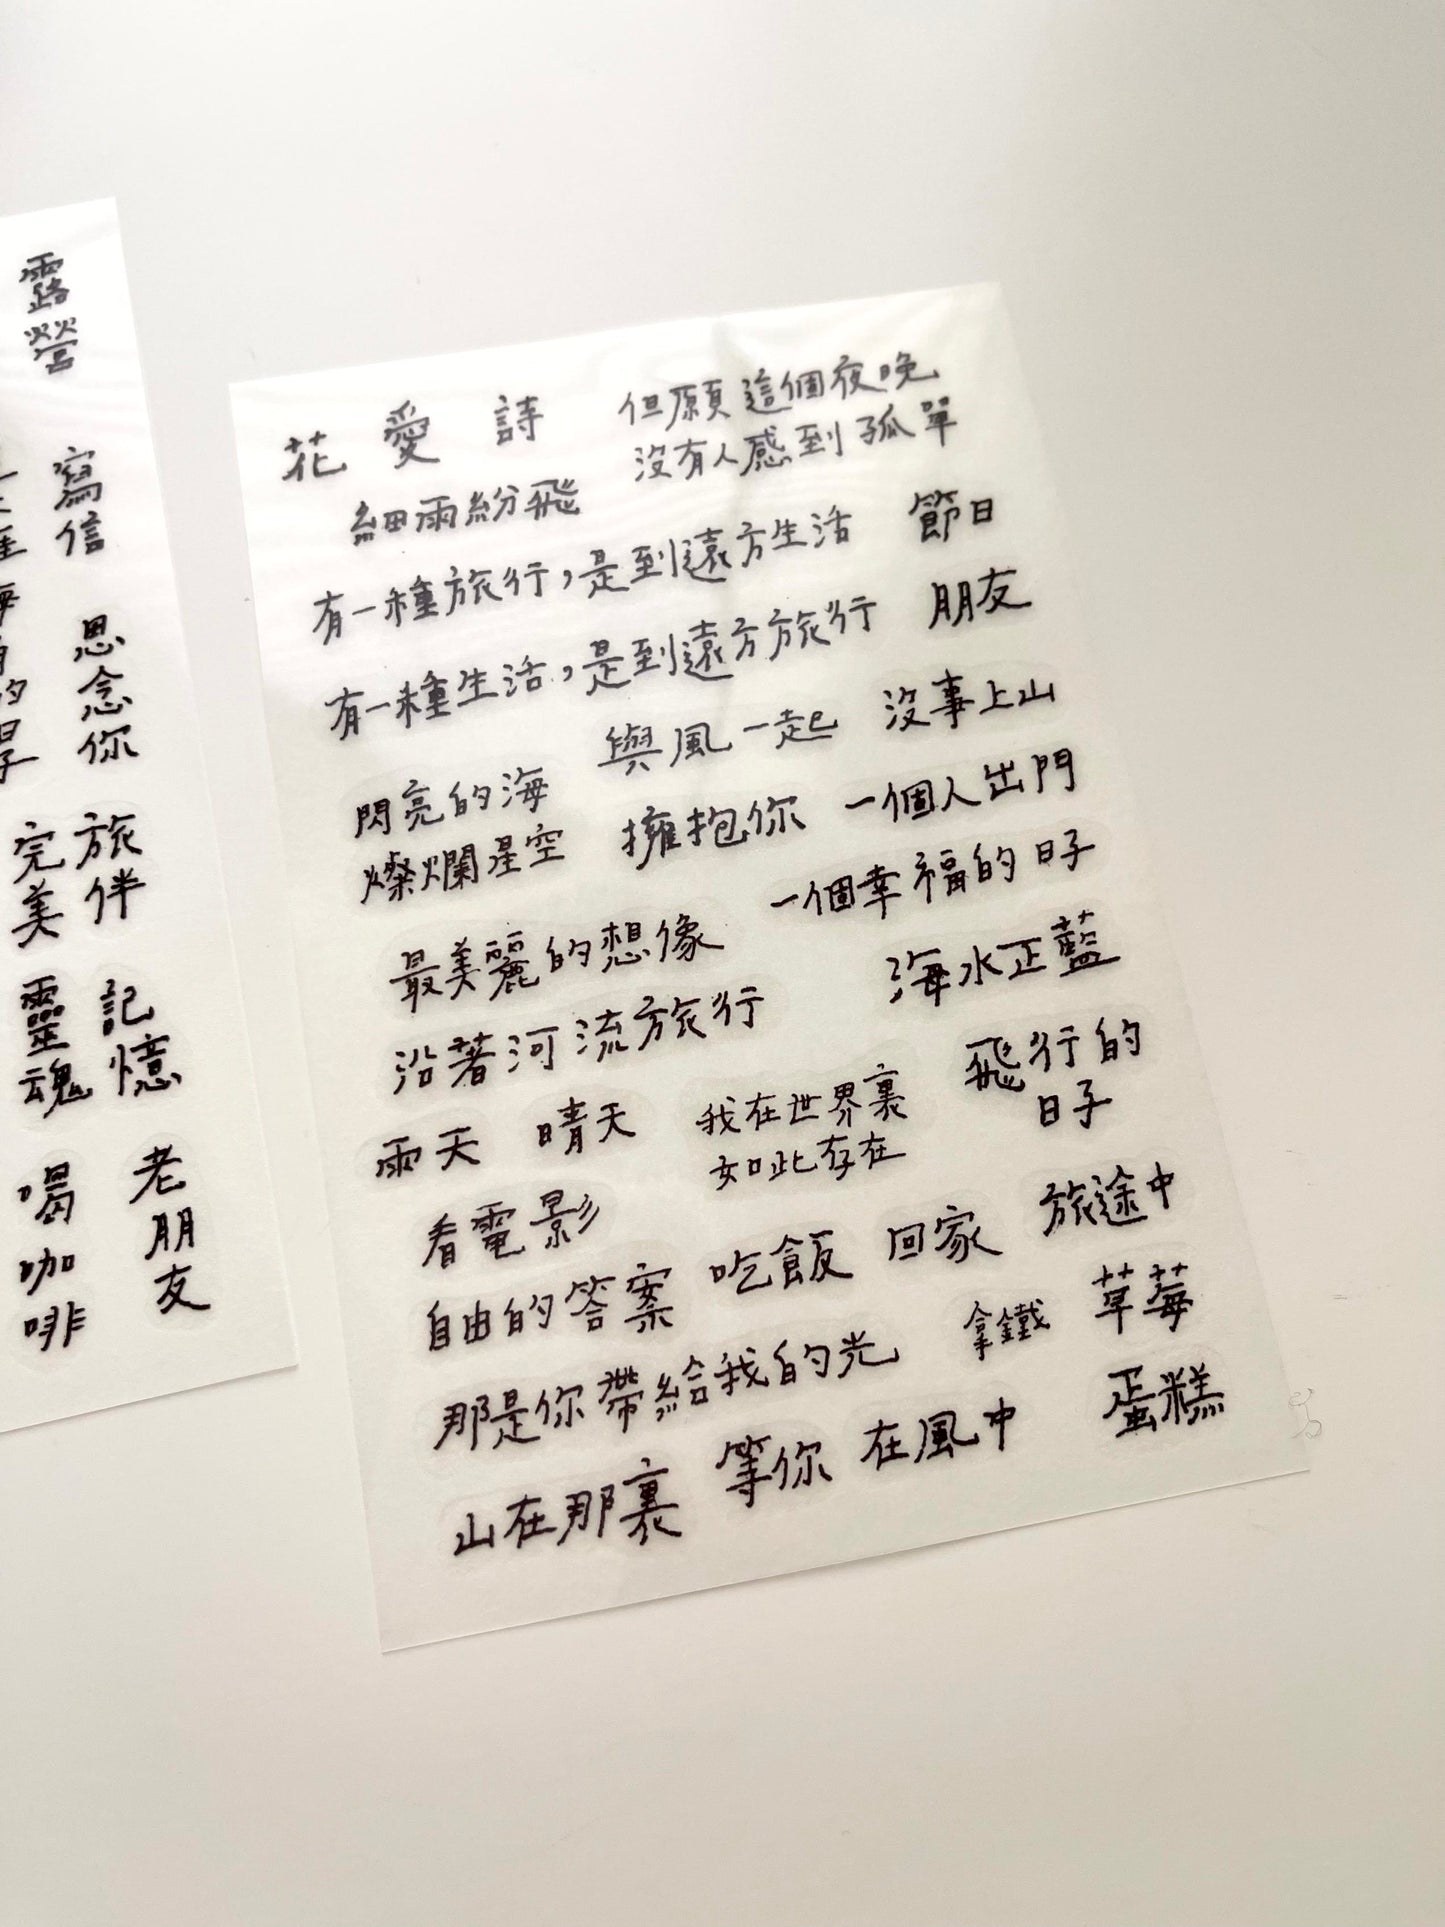 露營
寫信
思念你
旅伴
完美
靈魂
記憶
喝咖啡
老朋友
花 愛 詩
但願這個夜晚
沒有人感到孤單
細雨紛飛
節日
有一種旅行，是到遠方生活
朋友
有一種生活，是到遠方旅行
沒事上山
與風一起
閃亮的海
燦爛星空
擁抱你
一個人出門
一個幸福的日子
最美麗的想像
海水正藍
沿著河流旅行
飛行的
日子
雨天 晴天
我在世界裏
如此存在
看電影
吃飯 回家 旅途中
自由的答案
拿鐵 草莓
那是你帶給我的光
蛋糕
山在那裏 等你 在風中